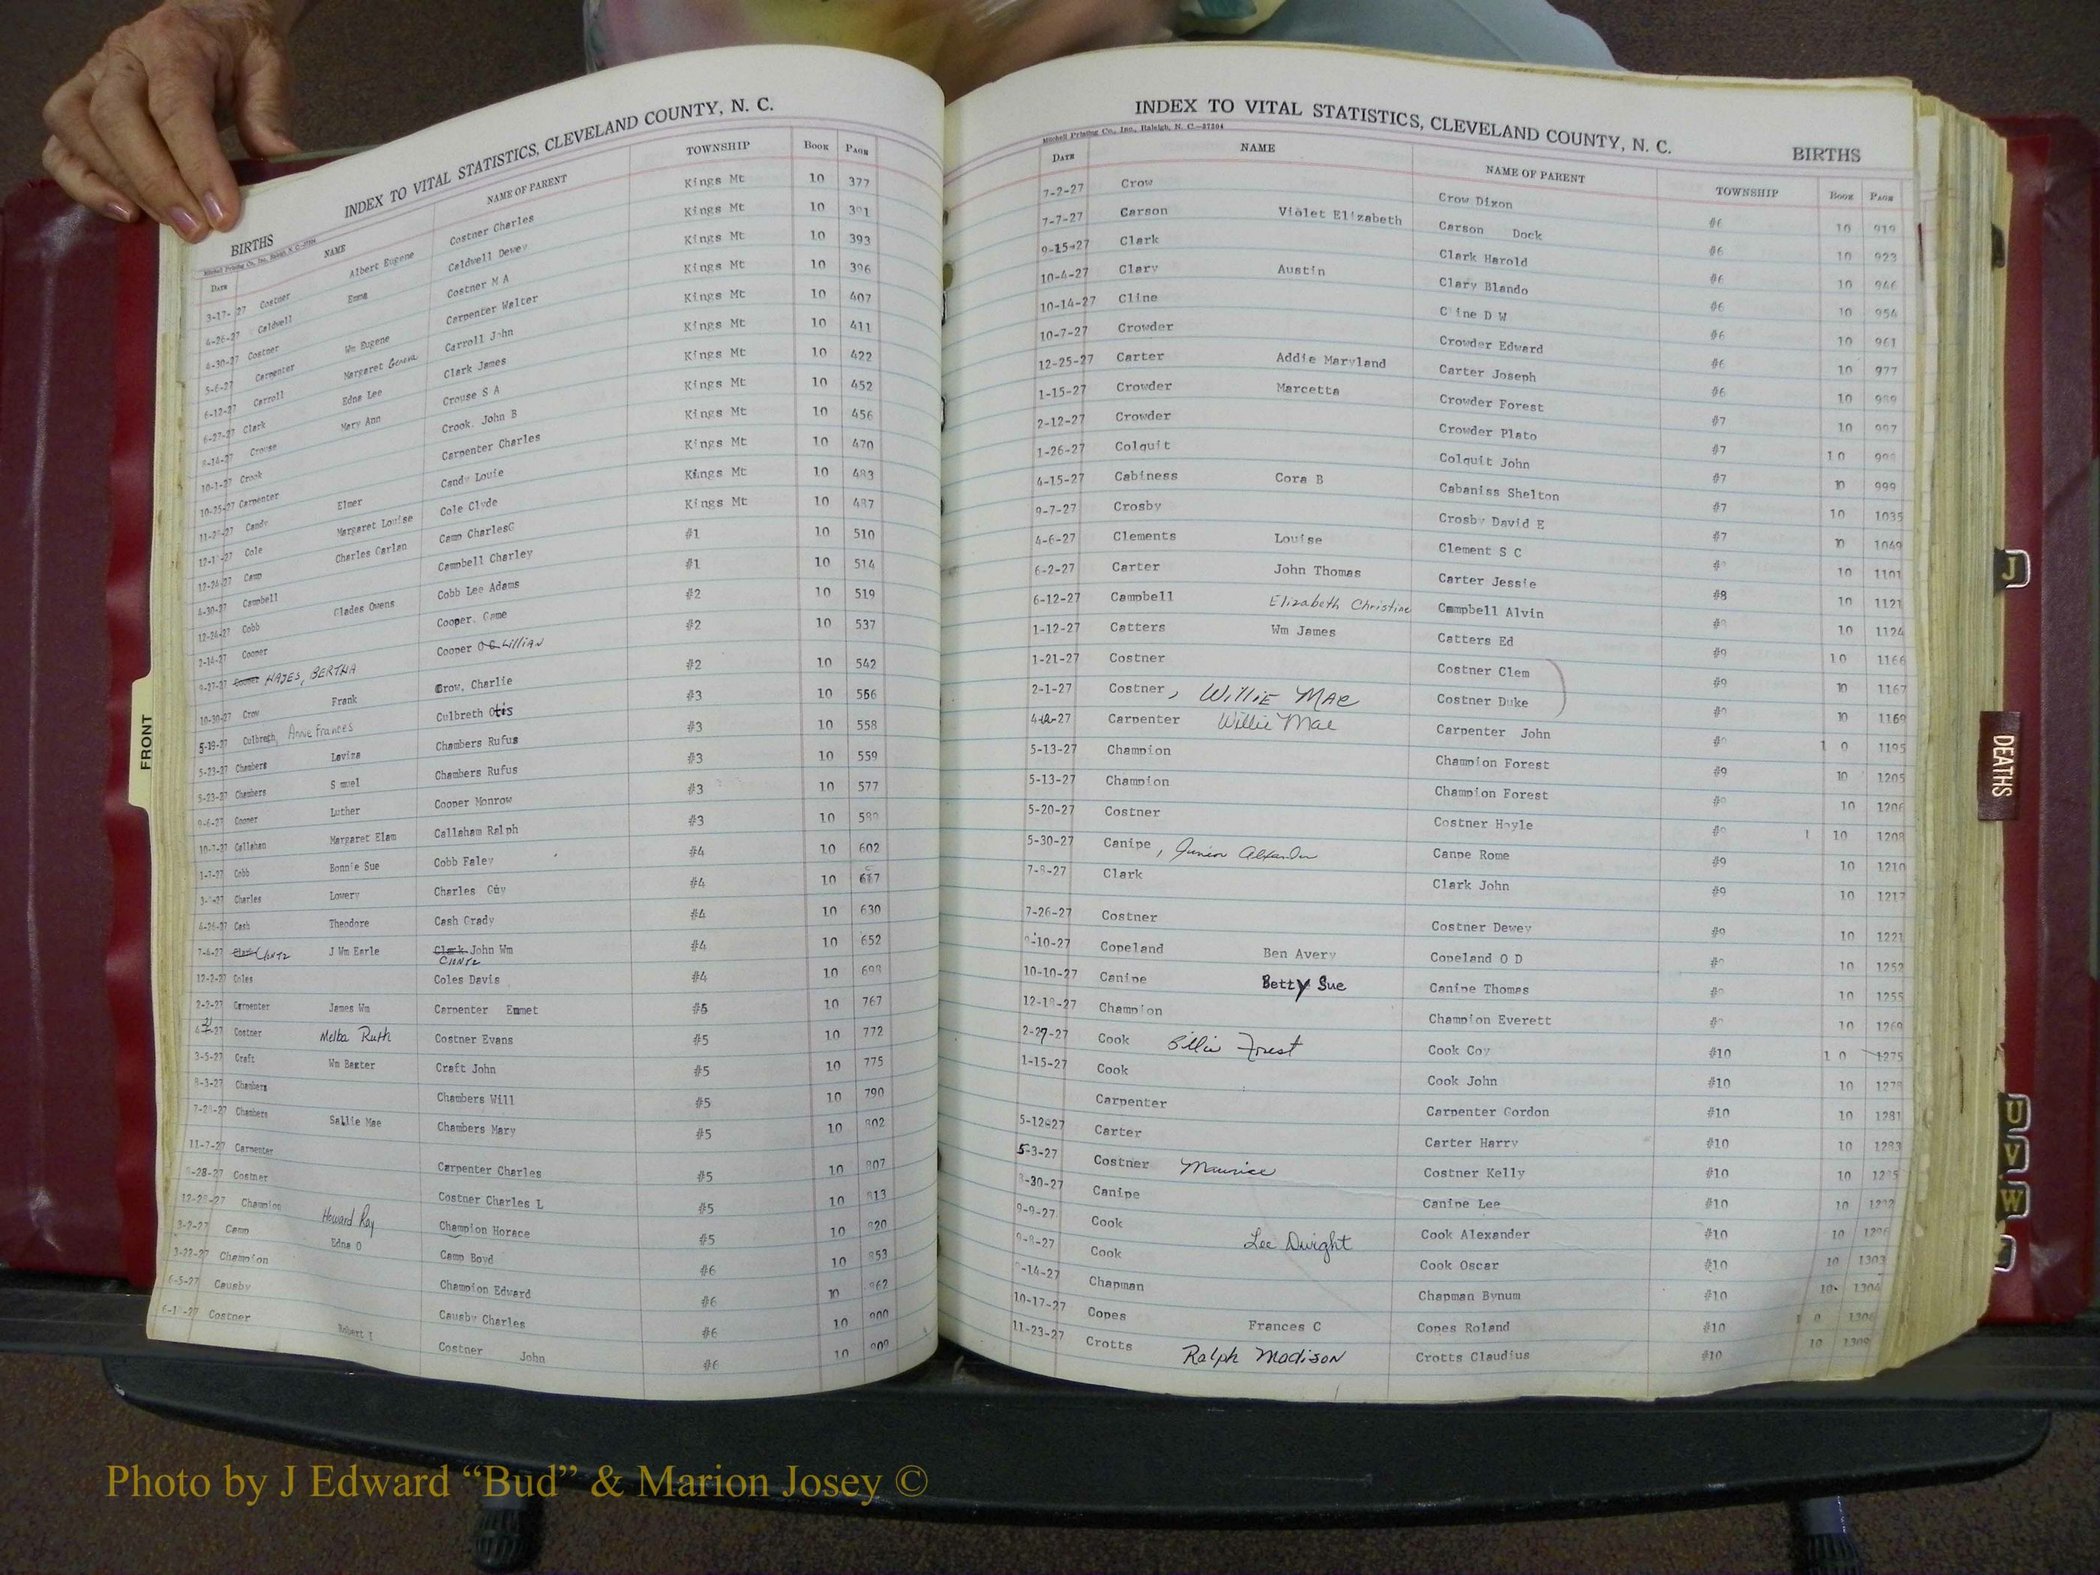 INDEX TO VITAL STATISTICS, CLEVELAND COUNTY, N. C.
BIRTHS
DATE NAME NAME OF PARENT TOWNSHIP BOOK PAGE
3-17-27 Costner Albert Eugene Costner Charles Kings Mt 10 377
4-26-27 Caldwell Emma Caldwell Dewey Kings Mt 10
4-30-27 Costner Costner M A Kings Mt 10 393
5-6-27 Carpenter Wm Eugene Carpenter Walter Kings Mt 10 396
6-12-27 Carroll Margaret Geneva Carroll John Kings Mt 10 407
6-27-27 Clark Edna Lee Clark James Kings Mt 10 411
8-14-27 Crouse Mary Ann Crouse S A Kings Mt 10 422
10-1-27 Crook Crook. John B Kings Mt 10 452
10-25-27 Carpenter Carpenter Charles Kings Mt 10 456
Candy Elmer Candy Louie Kings Mt 10 470
Cole Margaret Louise Cole Clyde Kings Mt 10 483
12-24-27 Camp Charles Garlan Camp CharlesG Kings Mt 10 487
4-30-27 Campbell Campbell Charley #1 10 510
12-24-27 Cobb Glades Owens Cobb Lee Adams #1 10 514
2-14-27 Cooper Cooper. Game #2 10 519
9-27-27 Cooner HAYES, BERTHA Cooper O G Lillian #2 10 537
10-30-27 Crow Frank Crow. Charlie #2 10 542
5-19-27 Culbreth, Annie Frances Culbreth Otis #3 10 556
5-23-27 Chambers Laviza Chambers Rufus #3 10 558
5-23-27 Chambers S muel Chambers Rufus #3 10 559
9-6-27 Cooner Luther Cooper Monrow #3 10 577
10-7-27 Callahan Margaret Elam Callaham Ralph #3 10
1-7-27 Cobb Bonnie Sue Cobb Faley #4 10 602
Charles Lowery Charles Guy #4 10 617
4-26-27 Cash Theodore Cash Grady #4 10 630
7-4-27 Clark Clontz J Wm Earle Clark John Wm #4 10 652
Clontz
12-2-27 Coles Coles Davis #4 10 698
2-2-27 Carpenter James Wm Carpenter Emmet #5 10 767
Costner Melba Ruth Costner Evans #5 10 772
3-5-27 Craft Wm Baxter Craft John #5 10 775
8-3-27 Chambers Chambers Will #5 10 790
Chambers Sallie Mae Chambers Mary #5 10 802
11-7-27 Carpenter Carpenter Charles #5 10 807
Costner Costner Charles L #5 10 813
12-28-27 Champion Howard Ray Champion Horace #5 10 820
3-2-27 Camp Edna O Camp Boyd #6 10 853
3-22-27 Champion Champion Edward #6 10 862
6-5-27 Causby Causby Charles #6 10 900
Costner Robert L Costner John #6 10 909
INDEX TO VITAL STATISTICS, CLEVELAND COUNTY, N. C.
Mitchell Printing Co., Inc., Raleigh, N. C.—37204
BIRTHS
DATE NAME NAME OF PARENT TOWNSHIP BOOK PAGE
7-2-27 Crow Crow Dixon #6 10 919
7-7-27 Carson Violet Elizabeth Carson Dock #6 10 923
9-15-27 Clark Clark Harold #6 10 946
10-4-27 Clary Austin Clary Blando #6 10 954
10-14-27 Cline C ine D W #6 10 961
10-7-27 Crowder Crowder Edward #6 10 977
12-25-27 Carter Addie Maryland Carter Joseph #6 10 989
1-15-27 Crowder Marcetta Crowder Forest #7 10 997
2-12-27 Crowder Crowder Plato #7 10
1-26-27 Colquit Colquit John #7 10 999
4-15-27 Cabiness Cora B Cabaniss Shelton #7 10 1035
9-7-27 Crosby Crosby David E #7 10 1049
4-6-27 Clements Louise Clement S C 10 1101
6-2-27 Carter John Thomas Carter Jessie #8 10 1121
6-12-27 Campbell Elizabeth Christine Campbell Alvin 10 1124
1-12-27 Catters Wm James Catters Ed #9 10 1166
1-21-27 Costner Costner Clem #9 10 1167
2-1-27 Costner, Willie Mae Costner Duke 10 1169
Carpenter Willie Mae Carpenter John 1 0 1195
5-13-27 Champion Champion Forest #9 10 1205
5-13-27 Champion Champion Forest 10 1206
5-20-27 Costner Costner Hoyle 10 1208
5-30-27 Canipe, Junior Alexander Canpe Rome #9 10 1210
7-8-27 Clark Clark John #9 10 1217
7-26-27 Costner Costner Dewey #9 10 1221
Copeland Ben Avery Copeland O D 10 1252
10-10-27 Canipe Betty Sue Canipe Thomas 10 1255
12-18-27 Champion Champion Everett 10 1269
2-27-27 Cook Billie Forest Cook Coy #10 1 0 1275
1-15-27 Cook Cook John #10 10 1278
Carpenter Carpenter Gordon #10 10 1281
5-12-27 Carter Carter Harry #10 10 1283
5-3-27 Costner Maurice Costner Kelly #10 10
Canipe Canipe Lee #10 10 1292
9-9-27 Cook Cook Alexander #10 10 1296
Cook Lee Dwight Cook Oscar #10 10 1303
Chapman Chapman Bynum #10 10 1304
10-17-27 Copes Frances C Copes Roland #10 1 0
11-23-27 Crotts Ralph Madison Crotts Claudius #10 10 1309
FRONT
J
DEATHS
U
V
W
Photo by J Edward “Bud” & Marion Josey ©